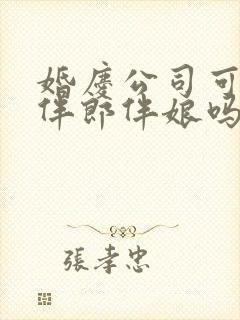 婚慶公司可
伴郎伴娘吗
張孝忠